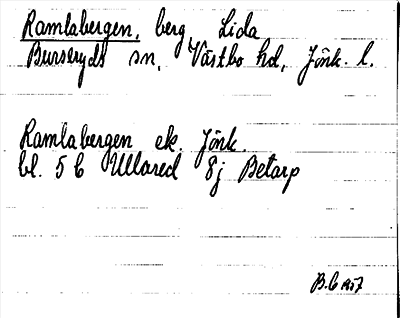 Ramlabergen, berg Lida
Burseryds sn, Västbo hd, Jönk. l.
Ramlabergen ek. Jönk.
bl. 5 C Ullared 8j Betarp